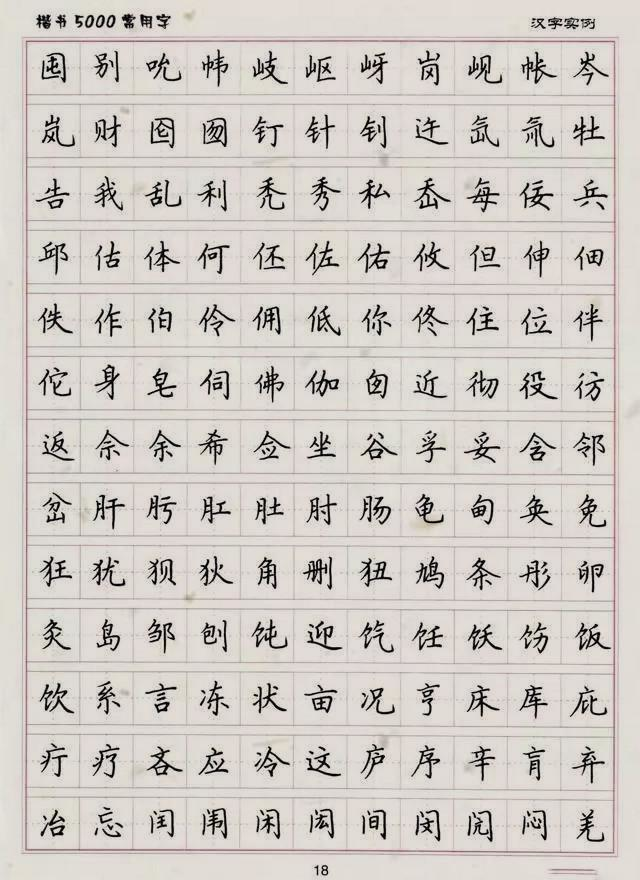 楷书5000常用字 汉字实例
囤 别 吮 帏 岐 岖 岈 岗 岘 帐 岑
岚 财 囵 囫 钉 针 钊 迕 氙 氚 牡
告 我 乱 利 秃 秀 私 岙 每 佞 兵
邱 估 体 何 伾 佐 佑 攸 但 伸 佃
佚 作 伯 伶 佣 低 你 佟 住 位 伴
佗 身 皂 伺 佛 伽 囱 近 彻 役 彷
返 佘 余 希 佥 坐 谷 孚 妥 含 邻
岔 肝 肟 肛 肚 肘 肠 龟 甸 奂 免
狂 犹 狈 狄 角 删 狃 鸠 条 彤 卵
灸 岛 邹 刨 饨 迎 饩 饪 饫 饬 饭
饮 系 言 冻 状 亩 况 亨 床 库 庇
疔 疗 吝 应 冷 这 庐 序 辛 肓 弃
冶 忘 闰 闱 闲 闳 间 闵 闶 闷 羌
18